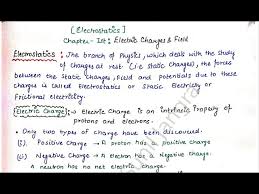 [Electrostatics]
Chapter - Ist: Electric Charges & Field
Electrostatics: The branch of Physics, which deals with the study
of charges at rest (i.e static charges), the forces
between the static charges, field and potentials due to these
charges is called Electrostatics or Static Electricity or
Frictional electricity.
Electric Charge: → Electric Charge is an intrinsic property of
protons and electrons.
• Only two types of charge have been discovered.
(i). Positive charge → A proton has a positive charge
(ii) Negative Charge → An electron has Negative charge.
A neutron has no net electric charge.